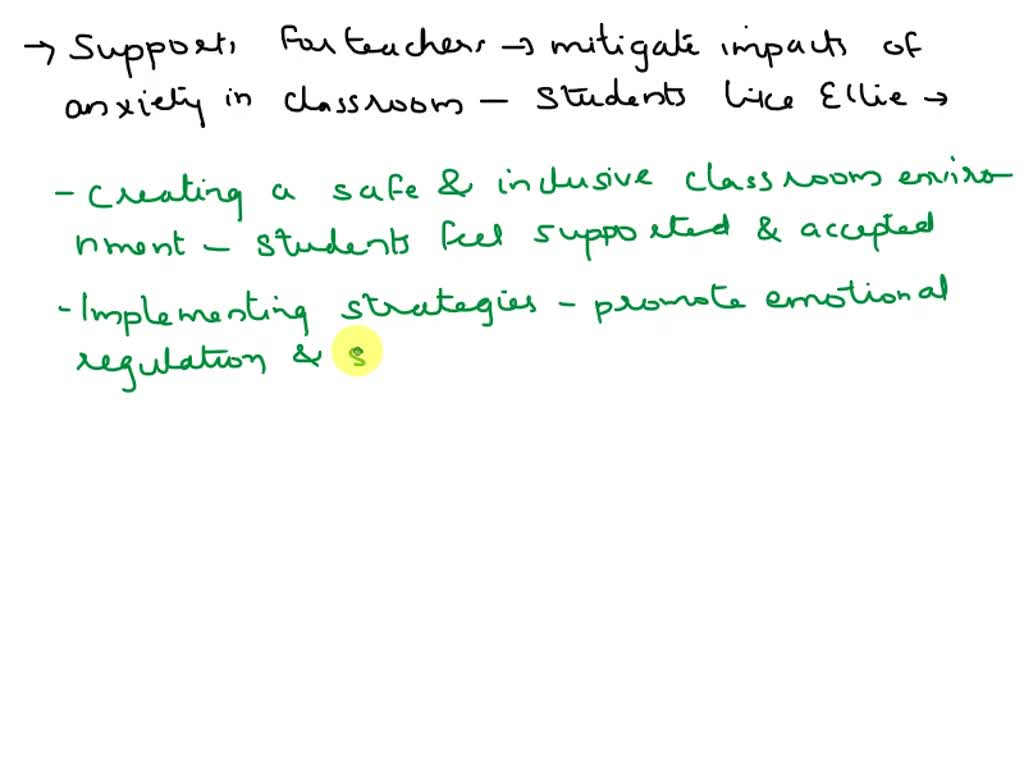 → Supports For teachers → mitigate impacts of
anxiety in classroom – Students like Ellie →
- Creating a safe & inclusive classroom enviro
nment – Students feel supported & accepted
- Implementing strategies – promote emotional
regulation & s